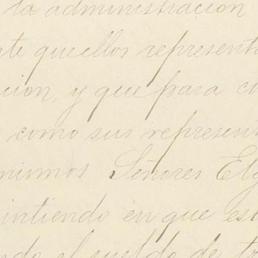 la administracion
te quellos represent
cion, y que para co
como sus represen
mismos Señores El
intiendo en que es
el sueldo de to